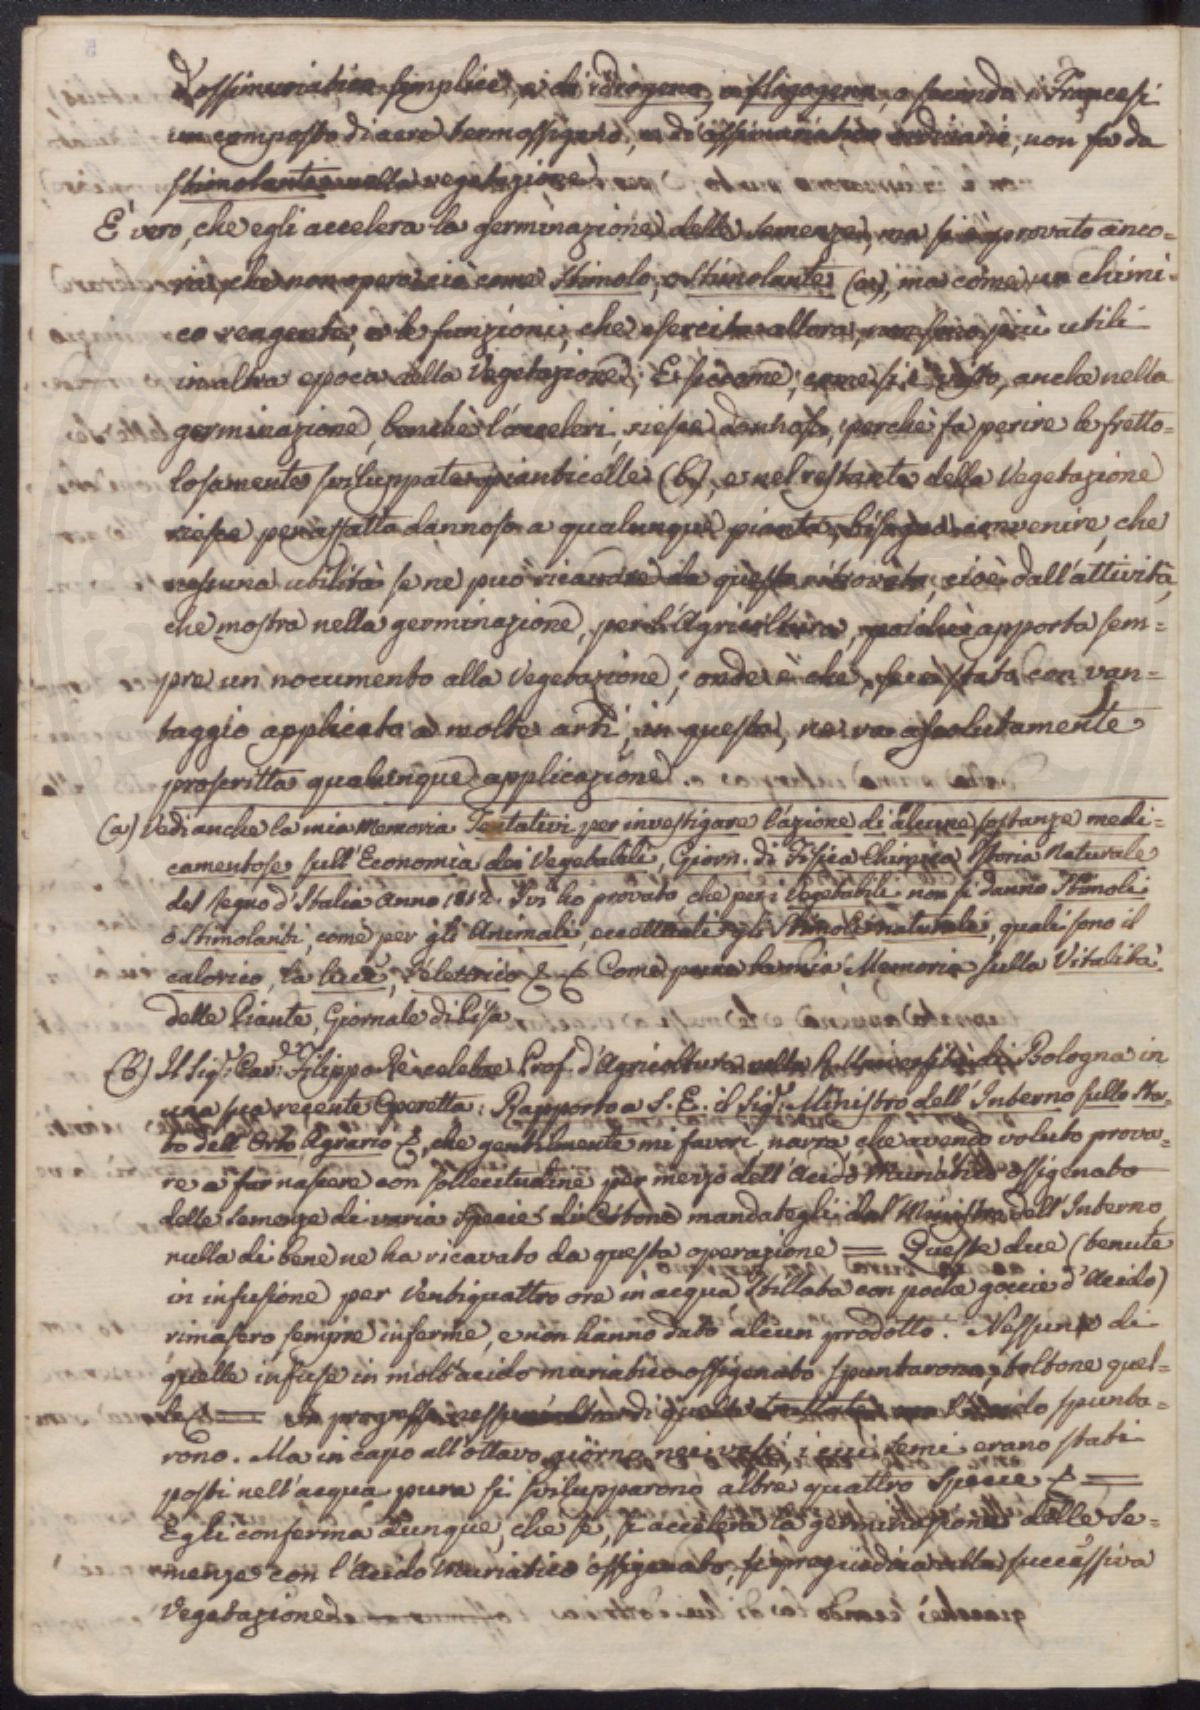 d'ossimuriatico semplice, e di idrogeno, o flogogeno, o secondo i Francesi
un composto di aere termossigeno, e di ossimuriatico ordinario, non fa da
stimolante nella vegetazione.
E' vero, che egli accelera la germinazione delle semenze, ma si è provato anco=
ra, che non opera ciò come Stimolo, o Stimolante (a), ma come un chimi=
co reagente, e le funzioni, che esercita allora, non sono più utili
in altra epoca della Vegetazione; E siccome, come si è visto, anche nella
germinazione, benchè l'acceleri, riesce dannoso, perchè fa perire le fretto=
losamente sviluppate pianticelle (b), e nel restante della Vegetazione
riesce per affatto dannoso a qualunque pianta, bisogna convenire, che
nessuna utilità se ne può ricavare da questo ritrovato, cioè dall'attività,
che mostra nella germinazione, per l'Agricoltura, poichè apporta sem=
pre un nocumento alla Vegetazione; onde è che, se è stato con van=
taggio applicato a molte arti, in questa, ne va assolutamente
proscritta qualunque applicazione.
(a) Vedi anche la mia Memoria Tentativi per investigare l'azione di alcune sostanze medi=
camentose sull'Economia dei Vegetabili, Giorn. di Fisica Chimica Storia Naturale
del Regno d'Italia Anno 1812. Ivi ho provato, che per i Vegetabili non si danno Stimoli
o Stimolanti, come per gli Animali, eccettuati gli Stimoli naturali, quali sono il
calorico, la luce, l'elettrico & & Come pure la mia Memoria sulla Vitalità
delle Piante, Giornale di Pisa
(b) Il Sig.r Cav.r Filippo Rè celebre Prof. d'Agricoltura nella di Bologna in
una sua recente Operetta: Rapporto a S. E. il Sig.r Ministro dell'Interno sullo Sta=
to dell'Orto Agrario &, che gentilmente mi favorì, narra, che avendo voluto prova=
re a far nascere con sollecitudine per mezzo dell'Acido Muriatico ossigenato
delle semenze di varia specie di Cotone mandategli dal Ministro dell'Interno
nulla di bene ne ha ricavato da questa operazione = Queste due (tenute
in infusione per Ventiquattro ore in acqua stillata con poche goccie d'Acido)
rimasero sempre inferme, e non hanno dato alcun prodotto. Nessuna di
quelle infuse in molt'acido muriatico ossigenato spuntarono, toltone quel=
le & = In progresso nessun'altra di quelle trattate con l'Acido spunta=
rono. Ma in capo all'ottavo giorno nei vasi, i cui semi erano stati
posti nell'acqua pura si svilupparono altre quattro Specie & =
Egli conferma dunque, che se, si accelera la germinazione delle Se=
menze con l'Acido Muriatico ossigenato, si pregiudica alla successiva
Vegetazione